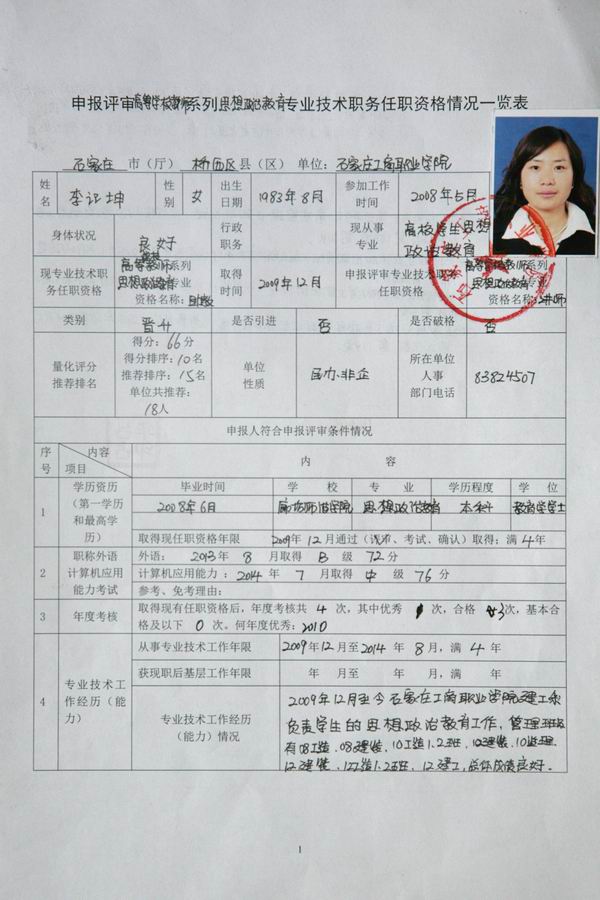 申报评审高等学校教师系列思想政治教育专业技术职务任职资格情况一览表
石家庄 市（厅） 桥西区 县（区） 单位：石家庄工商职业学院
姓名 李记坤 性别 女 出生日期 1983年8月 参加工作时间 2008年5月
身体状况 良好 行政职务 现从事专业 高校学生思想政治教育
现专业技术职务任职资格 高等教师系列 思想政治教育专业 资格名称：助教 取得时间 2009年12月 申报评审专业技术职务任职资格 高等学校教师系列 思想政治教育专业 资格名称：讲师
类别 晋升 是否引进 否 是否破格 否
量化评分推荐排名 得分：66分
得分排序：10名
推荐排序：15名
单位共推荐：
18人
单位性质 民办非企 所在单位人事部门电话 83824507
申报人符合申报评审条件情况
序号 内容 项目 内 容
1 学历资历（第一学历和最高学历） 毕业时间 学 校 专 业 学历程度 学 位
2008年6月 廊坊师范学院 思想政治教育 本科 教育学学士
取得现任职资格年限 2009年12月通过（评审、考试、确认）取得；满4年
2 职称外语计算机应用能力考试 外语：2013年 8 月取得 B 级 72分
计算机应用能力：2014 年 7 月取得 中 级 76 分
参考、免考理由：
3 年度考核 取得现有任职资格后，年度考核共 4 次，其中优秀 1 次，合格 3次，基本合
格及以下 0 次。何年度优秀：2010
4 专业技术工作经历（能力） 从事专业技术工作年限 2009年12月至2014 年 8月，满 4 年
获现职后基层工作年限 年 月至 年 月，满 年
专业技术工作经历（能力）情况 2009年12月至今石家庄工商职业学院建工系
负责学生的思想政治教育工作，管理班级
有08工造、08建装、10工造1.2班、10建装、10监理、
12建装、12工造1.2班、12建工，总体成绩良好。
1